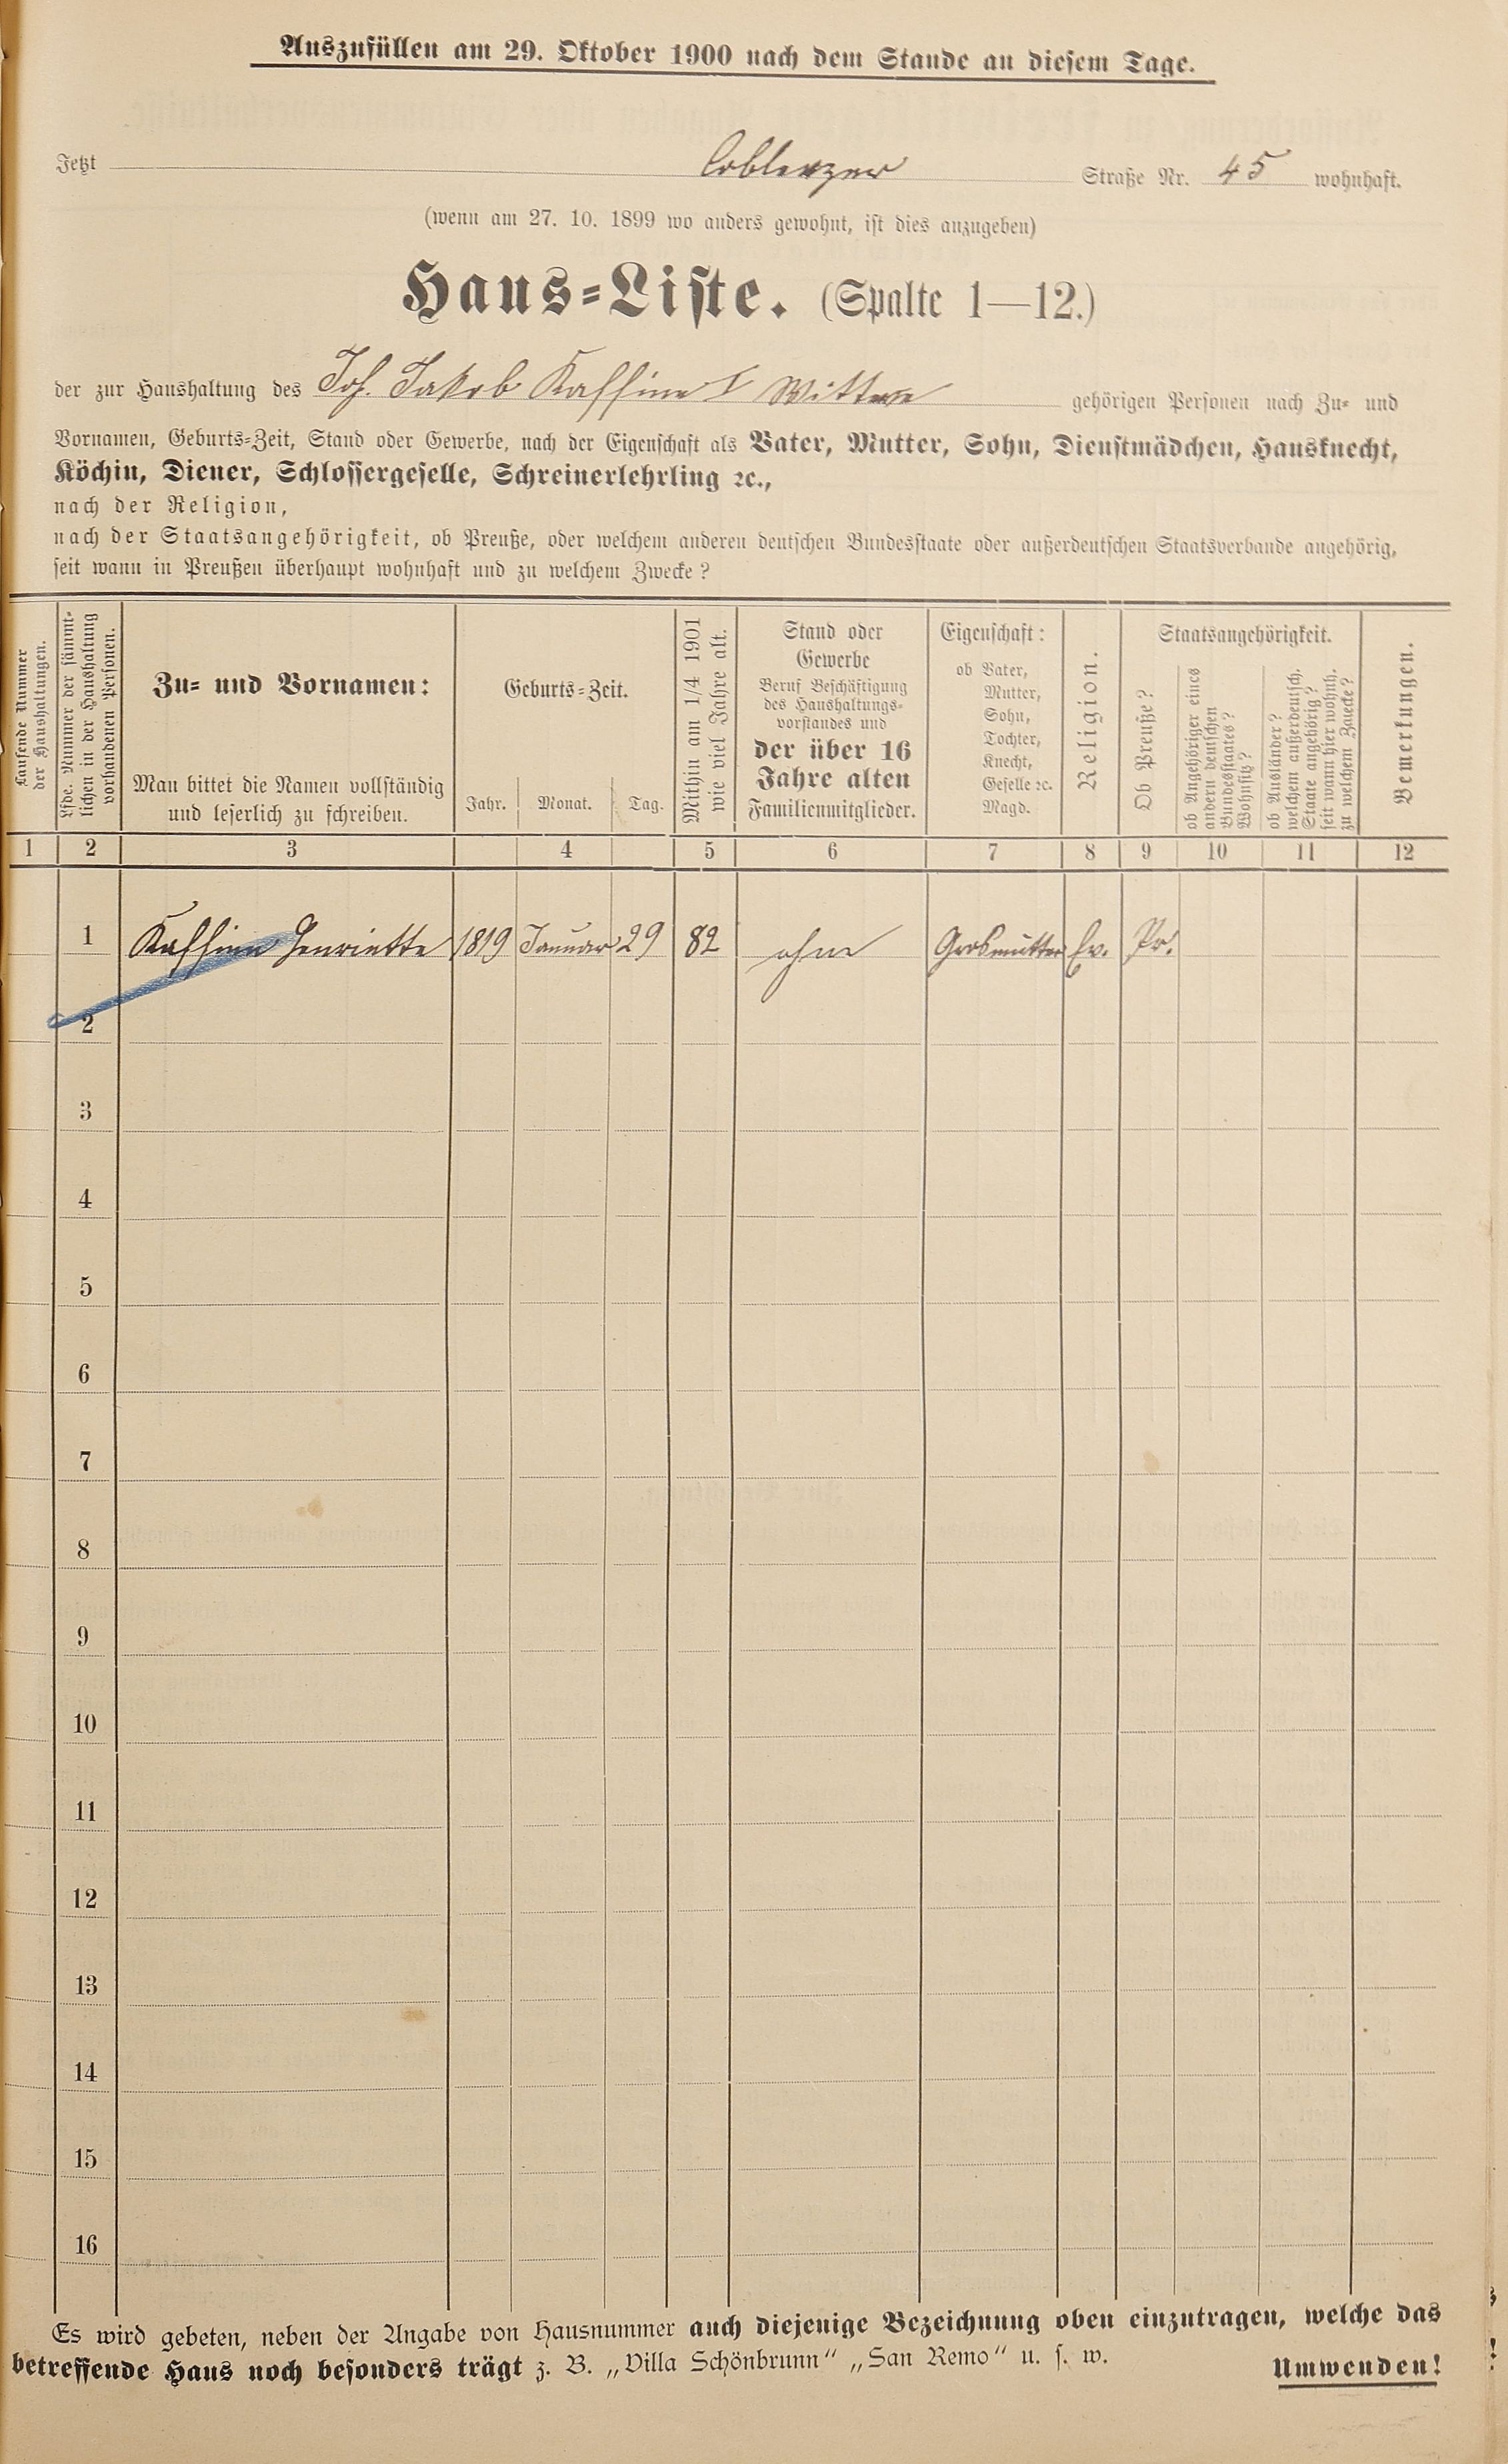 Auszufüllen am 29. Oktober 1900 nach dem Stande an diesem Tage.
Jetzt Coblenzer Straße Nr. 45 wohnhaft.
(wenn am 27. 10. 1899 wo anders gewohnt, ist dies anzugeben)
Haus=Liste. (Spalte 1—12.)
der zur Haushaltung des Joh. Jakob Kassine I Wittwe gehörigen Personen nach Zu= und
Vornamen, Geburts=Zeit, Stand oder Gewerbe, nach der Eigenschaft als Vater, Mutter, Sohn, Dienstmädchen, Hausknecht,
Köchin, Diener, Schlossergeselle, Schreinerlehrling ꝛc.,
nach der Religion,
nach der Staatsangehörigkeit, ob Preuße, oder welchem anderen deutschen Bundesstaate oder außerdeutschen Staatsverbande angehörig,
seit wann in Preußen überhaupt wohnhaft und zu welchem Zwecke?
Laufende Nummer
der Haushaltungen.
Lfde. Nummer der sämmt=
lichen in der Haushaltung
vorhandenen Personen.
Zu= und Vornamen:
Man bittet die Namen vollständig
und leserlich zu schreiben.
Geburts=Zeit.
Jahr. Monat. Tag.
Mithin am 1/4 1901
wie viel Jahre alt.
Stand oder
Gewerbe
Beruf Beschäftigung
des Haushaltungs=
vorstandes und
der über 16
Jahre alten
Familienmitglieder.
Eigenschaft:
ob Vater,
Mutter,
Sohn,
Tochter,
Knecht,
Geselle ꝛc.
Magd.
Religion.
Staatsangehörigkeit.
Ob Preuße?
ob Angehöriger eines
andern deutschen
Bundesstaates?
Wohnsitz?
ob Ausländer?
welchem außerdeutsch.
Staate angehörig?
seit wann hier wohnh.
zu welchem Zwecke?
Bemerkungen.
1 2 3 4 5 6 7 8 9 10 11 12
1 Kassine Henriette 1819 Januar 29 82 ohne Grosmutter Ev. Pr.
2
3
4
5
6
7
8
9
10
11
12
13
14
15
16
Es wird gebeten, neben der Angabe von Hausnummer auch diejenige Bezeichnung oben einzutragen, welche das
betreffende Haus noch besonders trägt z. B. „Villa Schönbrunn“ „San Remo“ u. s. w.
Umwenden!